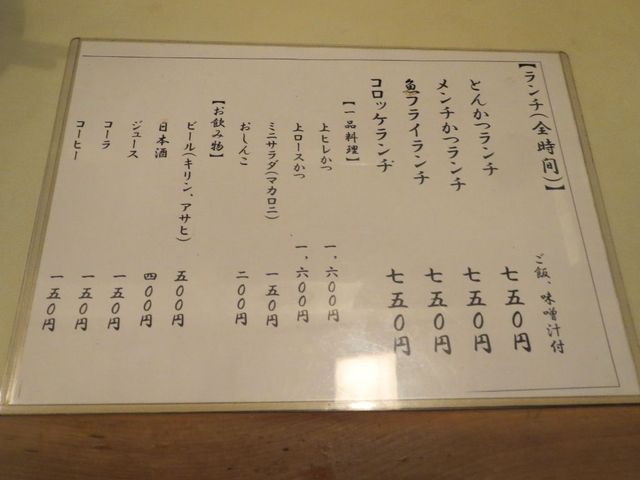 【ランチ(全時間)】
ご飯、味噌汁付
とんかつランチ 七五〇円
メンチかつランチ 七五〇円
魚フライランチ 七五〇円
コロッケランチ 七五〇円
【一品料理】
上ヒレかつ 一、六〇〇円
上ロースかつ 一、六〇〇円
ミニサラダ(マカロニ) 一五〇円
おしんこ 二〇〇円
【お飲み物】
ビール(キリン、アサヒ) 五〇〇円
日本酒 四〇〇円
ジュース 一五〇円
コーラ 一五〇円
コーヒー 一五〇円